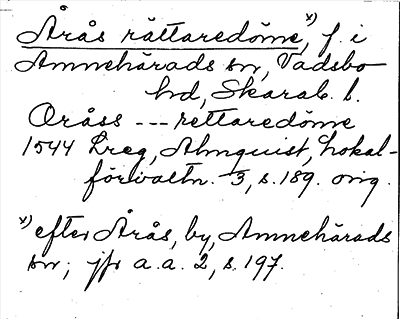 Årås rättaredöme, x) f. i
Amnehärads sn, Vadsbo
hd, Skarab. l.
Oråss --- rettaredöme
1544 Lreg, Almquist, Lokal-
förvaltn. 3, s. 189. orig.
x) efter Årås, by, Amnehärads
sn; jfr a.a. 2, s. 197.